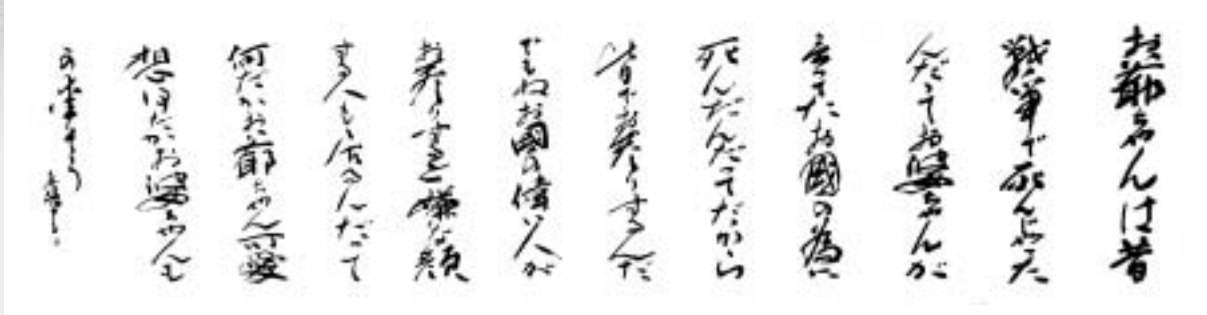 お爺ちゃんは昔
戦争で死んじゃった
んだってお婆ちゃんが
言ってたお國の為に
死んだんだってだから
皆でお参りするんだ
でもねお國の偉い人が
お参りすると嫌な顔
する人も居るんだって
何だかお爺ちゃん可愛
想はだがお婆ちゃんも